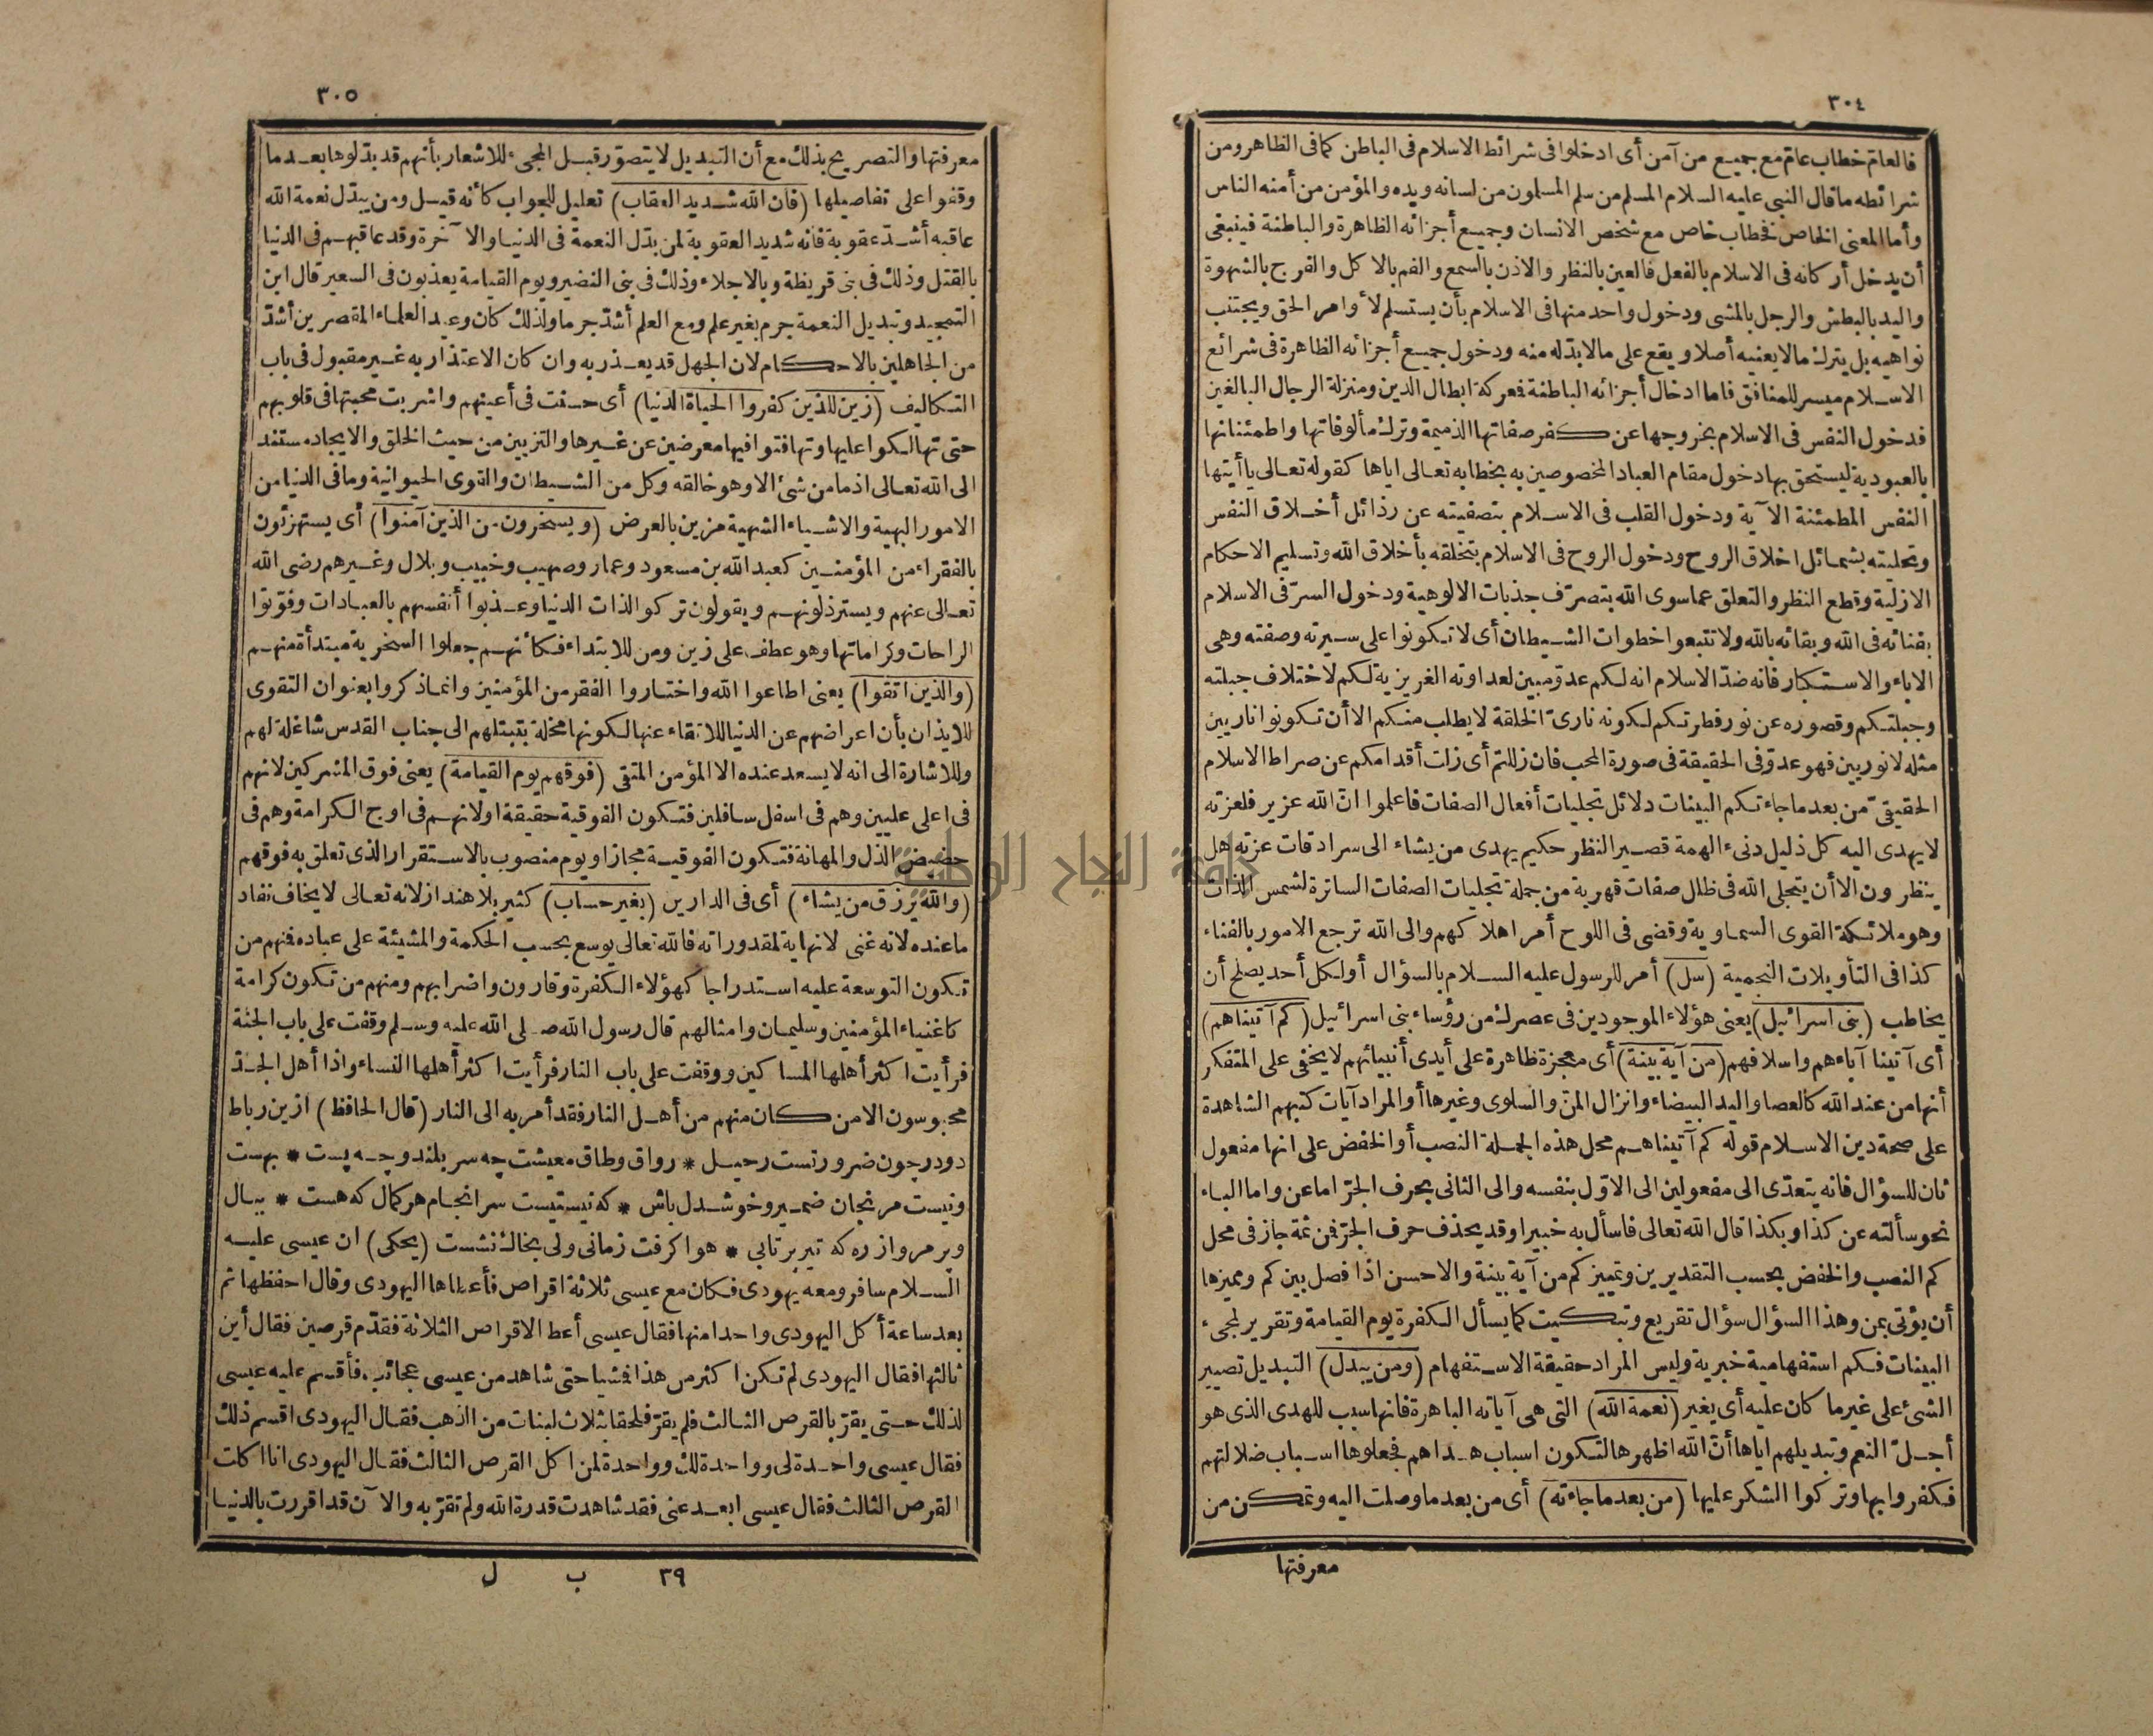 ٣٠٤
فالعام خطاب عام مع جميع من آمن أى ادخلوا فى شرائط الاسلام فى الباطن كما فى الظاهر ومن
شرائطه ما قال النبى عليه السلام المسلم من سلم المسلمون من لسانه ويده والمؤمن من أمنه الناس
وأما المعنى الخاص فخطاب خاص مع شخص الانسان وجميع أجزائه الظاهرة والباطنة فينبغى
أن يدخل أركانه فى الاسلام بالفعل فالعين بالنظر والاذن بالسمع والفم بالاكل والفرج بالشهوة
واليد بالبطش والرجل بالمشى ودخول واحد منها فى الاسلام بأن يستسلم لأوامر الحق ويجتنب
نواهيه بل يترك ما لا يعنيه أصلا ويقع على ما لا بدّ له منه ودخول جميع أجزائه الظاهرة فى شرائع
الاسلام ميسر للمنافق فاما ادخال أجزائه الباطنة فمعركة ابطال الدين ومنزلة الرجال البالغين
فدخول النفس فى الاسلام بخروجها عن كفر صفاتها الذميمة وترك مألوفاتها واطمئنانها
بالعبودية ليستحق بها دخول مقام العباد المخصوصين به بخطابه تعالى اياها كقوله تعالى يا أيتها
النفس المطمئنة الآية ودخول القلب فى الاسلام بتصفيته عن رذائل أخلاق النفس
وتحليته بشمائل اخلاق الروح ودخول الروح فى الاسلام بتخلقه بأخلاق الله وتسليم الاحكام
الازلية وقطع النظر والتعلق عما سوى الله بتصرّف جذبات الالوهية ودخول السرّ فى الاسلام
بفنائه فى الله وبقائه بالله ولا تتبعوا خطوات الشيطان أى لا تكونوا على سيرته وصفته وهى
الاباء والاستكبار فانه ضدّ الاسلام انه لكم عدوّ مبين لعداوته الغريزية لكم لاختلاف جبلته
وجبلتكم وقصوره عن نور فطرتكم لكونه نارىّ الخلقة لا يطلب منكم الا أن تكونوا ناريين
مثله لا نوريين فهو عدوّ فى الحقيقة فى صورة المحب فان زللتم أى زلت أقدامكم عن صراط الاسلام
الحقيقىّ من بعد ما جاءتكم البينات دلائل تجليات أفعال الصفات فاعلموا انّ الله عزيز فلعزته
لا يهدى اليه كل ذليل دنىء الهمة قصير النظر حكيم يهدى من يشاء الى سرادقات عزته هل
ينظرون الا أن يتجلى الله فى ظلل صفات قهرية من جملة تجليات الصفات الساترة لشمس الذات
وهو ملائكة القوى السماوية وقضى فى اللوح أمر اهلاكهم والى الله ترجع الامور بالفناء
كذا فى التأويلات النجمية (سل) أمر للرسول عليه السلام بالسؤال أو لكل أحد يصلح أن
يخاطب (بنى اسرائيل) يعنى هؤلاء الموجودين فى عصرك من رؤساء بنى اسرائيل (كم آتيناهم)
أى آتينا آباءهم واسلافهم (من آية بينة) أى معجزة ظاهرة على أيدى أنبيائهم لا يخفى على المتفكر
أنها من عند الله كالعصا واليد البيضاء وانزال المنّ والسلوى وغيرها أو المراد آيات كتبهم الشاهدة
على صحة دين الاسلام قوله كم آتيناهم محل هذه الجملة النصب أو الخفض على انها مفعول
ثان للسؤال فانه يتعدّى الى مفعولين الى الاوّل بنفسه والى الثانى بحرف الجرّ اما عن واما الباء
نحو سألته عن كذا وبكذا قال الله تعالى فاسأل به خبيرا وقد يحذف حرف الجرّ فمن ثمة جاز فى محل
كم النصب والخفض بحسب التقديرين وتمييز كم من آية بينة والاحسن اذا فصل بين كم ومميزها
أن يؤتى بمن وهذا السؤال سؤال تقريع وتبكيت كما يسأل الكفرة يوم القيامة وتقرير لمجىء
البينات فكم استفهامية خبرية وليس المراد حقيقة الاستفهام (ومن يبدل) التبديل تصيير
الشئ على غير ما كان عليه أى يغير (نعمة الله) التى هى آياته الباهرة فانها سبب للهدى الذى هو
أجلّ النعم وتبديلهم اياها أنّ الله اظهرها لتكون اسباب هداهم فجعلوها اسباب ضلالتهم
فكفروا بها وتركوا الشكر عليها (من بعد ما جاءته) أى من بعد ما وصلت اليه وتمكن من
معرفتها
٣٠٥
معرفتها والتصريح بذلك مع أن التبديل لا يتصوّر قبل المجىء للاشعار بأنهم قد بدّلوها بعد ما
وقفوا على تفاصيلها (فان الله شديد العقاب) تعليل للجواب كأنه قيل ومن يبدّل نعمة الله
عاقبه أشدّ عقوبة فانه شديد العقوبة لمن بدّل النعمة فى الدنيا والآخرة وقد عاقبهم فى الدنيا
بالقتل وذلك فى بنى قريظة وبالاجلاء وذلك فى بنى النضير ويوم القيامة يعذبون فى السعير قال ابن
التمجيد وتبديل النعمة جرم بغير علم ومع العلم أشدّ جرما ولذلك كان وعيد العلماء المقصرين أشدّ
من الجاهلين بالاحكام لان الجهل قد يعذر به وان كان الاعتذار به غير مقبول فى باب
التكاليف (زين للذين كفروا الحياة الدنيا) أى حسنت فى أعينهم واشربت محبتها فى قلوبهم
حتى تهالكوا عليها وتهافتوا فيها معرضين عن غيرها والتزيين من حيث الخلق والايجاد مستند
الى الله تعالى اذ ما من شئ الا وهو خالقه وكل من الشيطان والقوى الحيوانية وما فى الدنيا من
الامور البهية والاشياء الشهية مزين بالعرض (ويسخرون من الذين آمنوا) أى يستهزئون
بالفقراء من المؤمنين كعبد الله بن مسعود وعمار وصهيب وخبيب وبلال وغيرهم رضى الله
تعالى عنهم ويسترذلونهم ويقولون تركوا لذات الدنيا وعذبوا أنفسهم بالعبادات وفوّتوا
الراحات وكراماتها وهو عطف على زين ومن للابتداء فكأنهم جعلوا السخرية مبتدأة منهم
(والذين اتقوا) يعنى اطاعوا الله واختاروا الفقر من المؤمنين وانما ذكروا بعنوان التقوى
للايذان بأن اعراضهم عن الدنيا للاتقاء عنها لكونها مخلة بتبتلهم الى جناب القدس شاغلة لهم
وللاشارة الى انه لا يسعد عنده الا المؤمن المتقى (فوقهم يوم القيامة) يعنى فوق المشركين لانهم
فى اعلى عليين وهم فى اسفل سافلين فتكون الفوقية حقيقة اولانهم فى اوج الكرامة وهم فى
حضيض الذل والمهانة فتكون الفوقية مجازا ويوم منصوب بالاستقرار الذى تعلق به فوقهم
(والله يرزق من يشاء) أى فى الدارين (بغير حساب) كثير بلا هنداز لانه تعالى لا يخاف نفاد
ما عنده لانه غنى لا نهاية لمقدوراته فالله تعالى يوسع بحسب الحكمة والمشيئة على عباده فمنهم من
تكون التوسعة عليه استدراجا كهؤلاء الكفرة وقارون واضرابهم ومنهم من تكون كرامة
كاغنياء المؤمنين وسليمان وامثالهم قال رسول الله صلى الله عليه وسلم وقفت على باب الجنة
فرأيت اكثر أهلها المساكين ووقفت على باب النار فرأيت اكثر أهلها النساء واذا أهل الجدّ
محبوسون الا من كان منهم من أهل النار فقد أمر به الى النار (قال الحافظ) ازين رباط
دودرچون ضرورتست رحيل * رواق وطاق معيشت چه سر بلند وچه پست * بهست
ونيست مرنجان ضمير وخوشدل باش * كه نيستيست سرانجام هر كمال كه هست * ببال
وپر مرو از ره كه تير پرتابى * هوا كرفت زمانى ولى بخاك نشست (يحكى) ان عيسى عليه
السلام سافر ومعه يهودى فكان مع عيسى ثلاثة اقراص فأعطاها اليهودى وقال احفظها ثم
بعد ساعة أكل اليهودى واحدا منها فقال عيسى أعط الاقراص الثلاثة فقدّم قرصين فقال أين
ثالثها فقال اليهودى لم تكن اكثر من هذا فمشيا حتى شاهد من عيسى عجائب فأقسم عليه عيسى
لذلك حتى يقرّ بالقرص الثالث فلم يقرّ فلحقا بثلاث لبنات من الذهب فقال اليهودى اقسم ذلك
فقال عيسى واحدة لى وواحدة لك وواحدة لمن اكل القرص الثالث فقال اليهودى انا اكلت
القرص الثالث فقال عيسى ابعد عنى فقد شاهدت قدرة الله ولم تقرّ به والآن قد اقررت بالدنيا
٣٩ ب ل
جامعة النجاح الوطنية